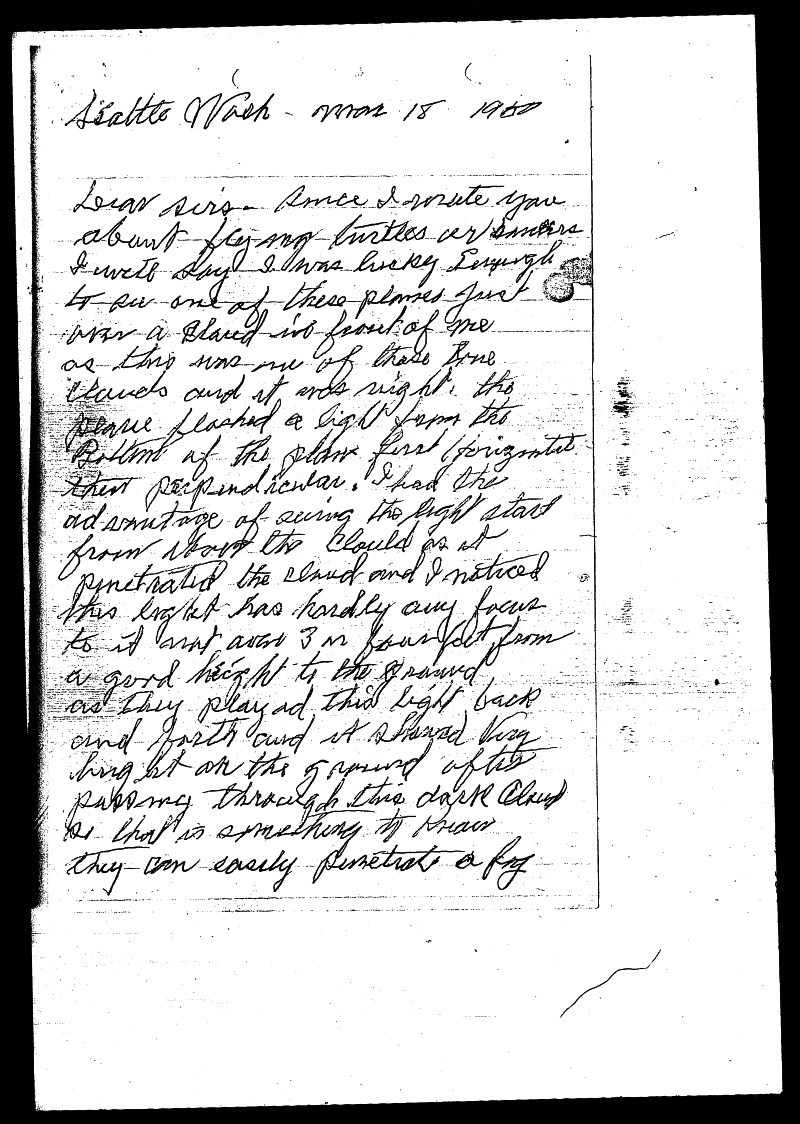 Seattle Wash - Mar 18 1950
Dear sirs - Since I wrote you
about flying turtles or saucers
I will say I was lucky Enough
to see one of these planes just
over a cloud in front of me
as this was one of those
clouds and it was night. the
plane flashed a light from the
Bottom of the plane first horizontal
then perpendicular. I had the
advantage of seeing the light start
from above the cloud as it
penetrated the cloud and I noticed
this light has hardly any focus
to it not over 3 or four feet from
a good height to the ground
as they played this light back
and forth and it showed Very
bright on the ground after
passing through this dark cloud
so that is something to know
they can easily penetrate a fog